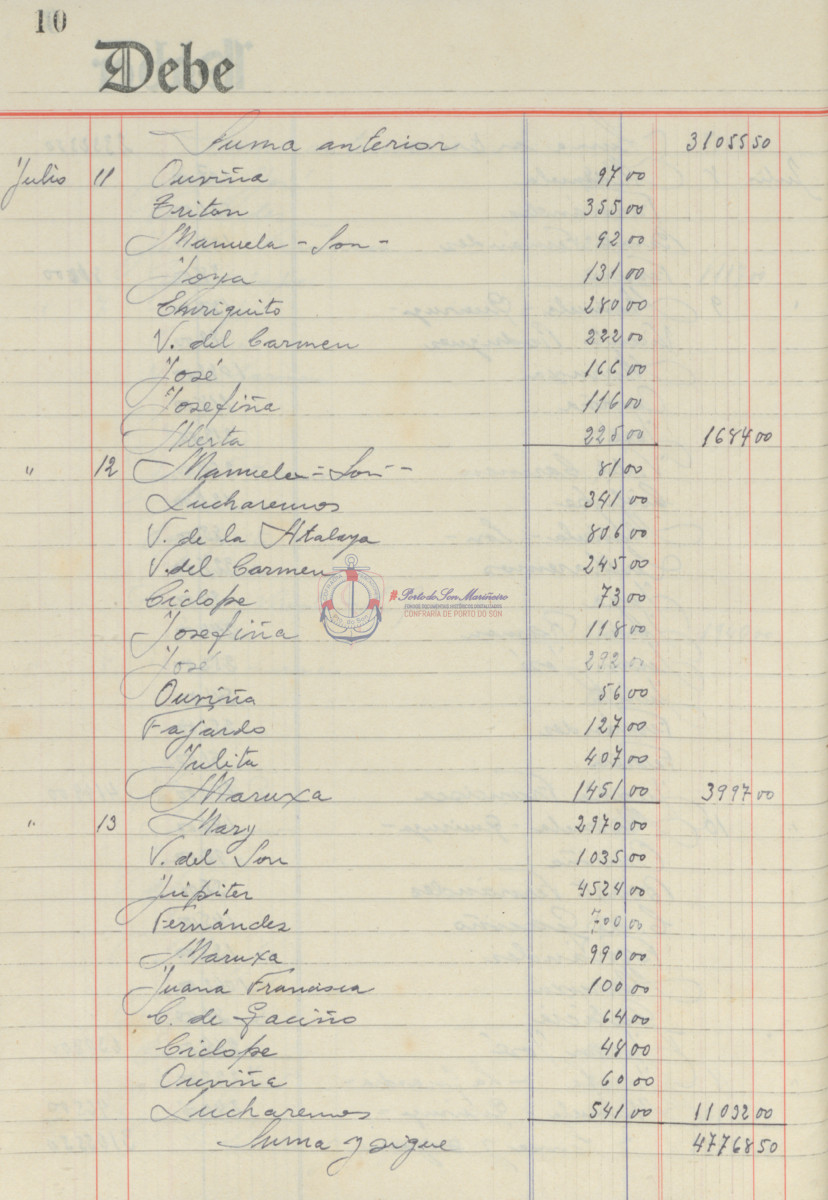 10
Debe
Suma anterior 31055 50
Julio 11 Ouviña 97 00
Triton 355 00
Manuela - Son - 92 00
Joya 131 00
Enriquito 280 00
V. del Carmen 222 00
José 166 00
Josefiña 116 00
Alerta 225 00 1684 00
" 12 Manuela - Son - 81 00
Lucharemos 341 00
V. de la Atalaya 806 00
V. del Carmen 245 00
Ciclope 73 00
#Porto do Son Mariñeiro
CONFRARÍA DE PORTO DO SON
Josefiña 118 00
José 292 00
Ouviña 56 00
Fajardo 127 00
Julita 407 00
Maruxa 1451 00 3997 00
" 13 Mary 2970 00
V. del Son 1035 00
Júpiter 4524 00
Fernández 700 00
Maruxa 990 00
Juana Francisca 100 00
C. de Gaciño 64 00
Ciclope 48 00
Ouviña 60 00
Lucharemos 541 00 11032 00
Suma y sigue 47768 50